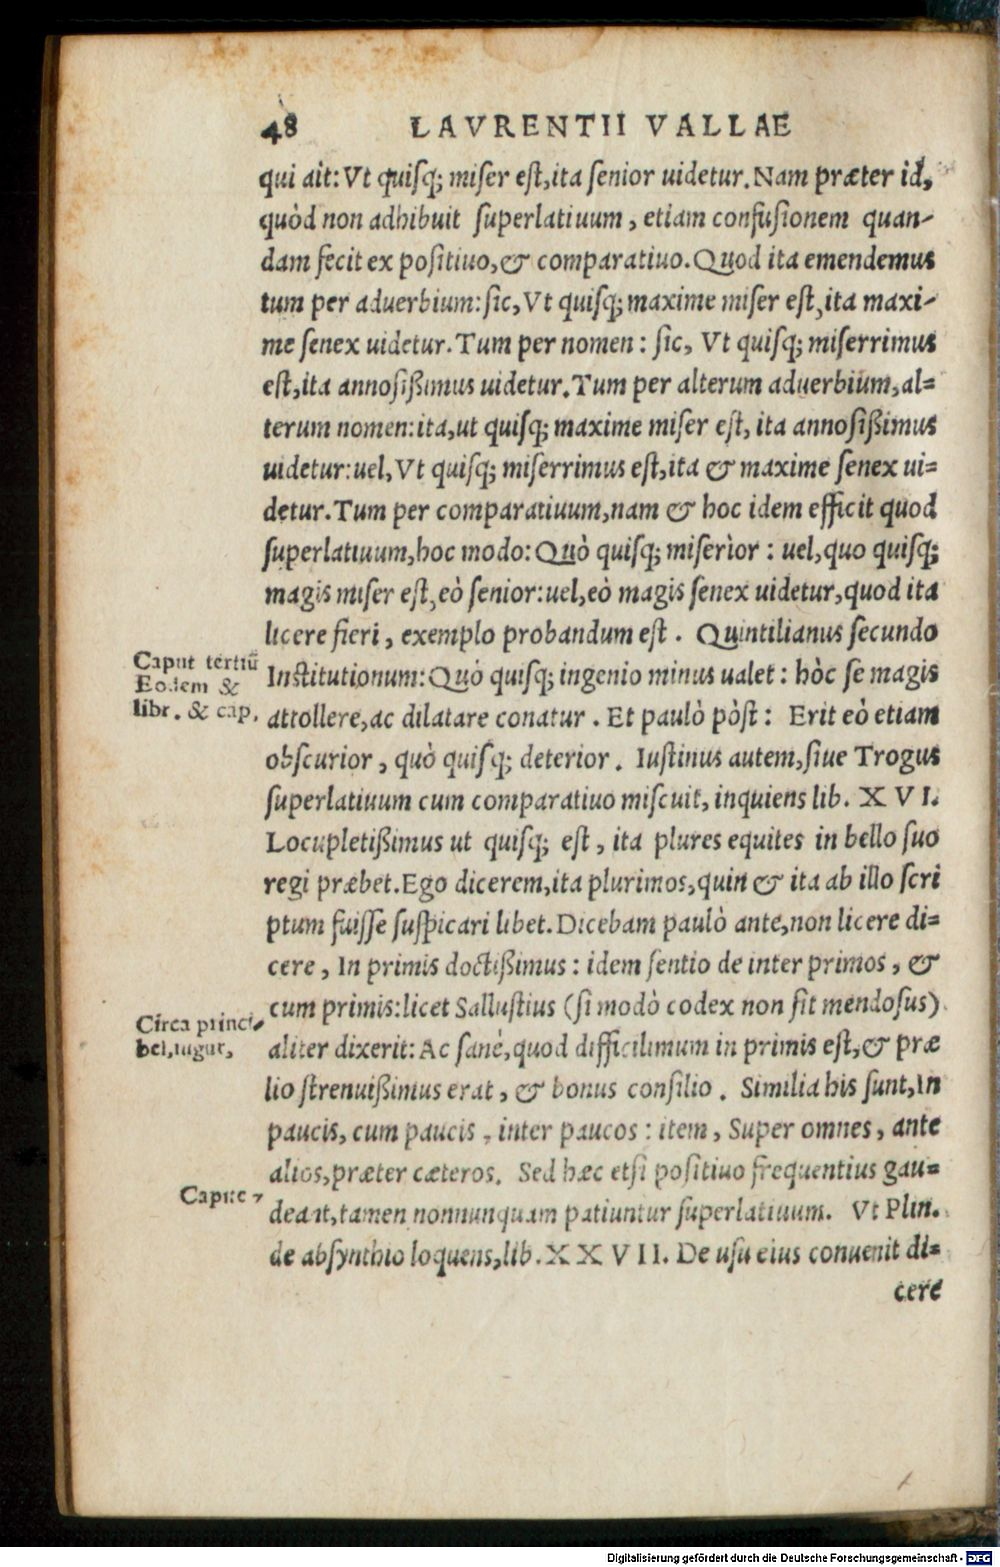 48 LAVRENTII VALLAE
qui ait: Vt quisq; miser est, ita senior uidetur. Nam præter id,
quòd non adhibuit superlatiuum, etiam confusionem quan-
dam fecit ex positiuo, & comparatiuo. Quod ita emendemus
tum per aduerbium: sic, Vt quisq; maxime miser est, ita maxi-
me senex uidetur. Tum per nomen: sic, Vt quisq; miserrimus
est, ita annosißimus uidetur. Tum per alterum aduerbium, al=
terum nomen: ita, ut quisq; maxime miser est, ita annosißimus
uidetur: uel, Vt quisq; miserrimus est, ita & maxime senex ui=
detur. Tum per comparatiuum, nam & hoc idem efficit quod
superlatiuum, hoc modo: Quò quisq; miserior: uel, quo quisq;
magis miser est, eò senior: uel, eò magis senex uidetur, quod ita
licere fieri, exemplo probandum est. Quintilianus secundo
Caput tertiũ
Eodem &
libr. & cap.
Institutionum: Quò quisq; ingenio minus ualet: hòc se magis
attollere, ac dilatare conatur. Et paulò pòst: Erit eò etiam
obscurior, quò quisq; deterior. Iustinus autem, siue Trogus
superlatiuum cum comparatiuo miscuit, inquiens lib. XVI.
Locupletißimus ut quisq; est, ita plures equites in bello suo
regi præbet. Ego dicerem, ita plurimos, quin & ita ab illo scri
ptum fuisse suspicari libet. Dicebam paulò ante, non licere di=
cere, In primis doctißimus: idem sentio de inter primos, &
cum primis: licet Sallustius (si modò codex non sit mendosus)
Circa princi-
bel. iugur.
aliter dixerit: Ac sanè, quod difficilimum in primis est, & præ
lio strenuißimus erat, & bonus consilio. Similia his sunt, In
paucis, cum paucis, inter paucos: item, Super omnes, ante
alios, præter cæteros. Sed hæc etsi positiuo frequentius gau=
Capite 7
deant, tamen nonnunquam patiuntur superlatiuum. Vt Plin.
de absynthio loquens, lib. XXVII. De usu eius conuenit di=
cere
Digitalisierung gefördert durch die Deutsche Forschungsgemeinschaft - DFG